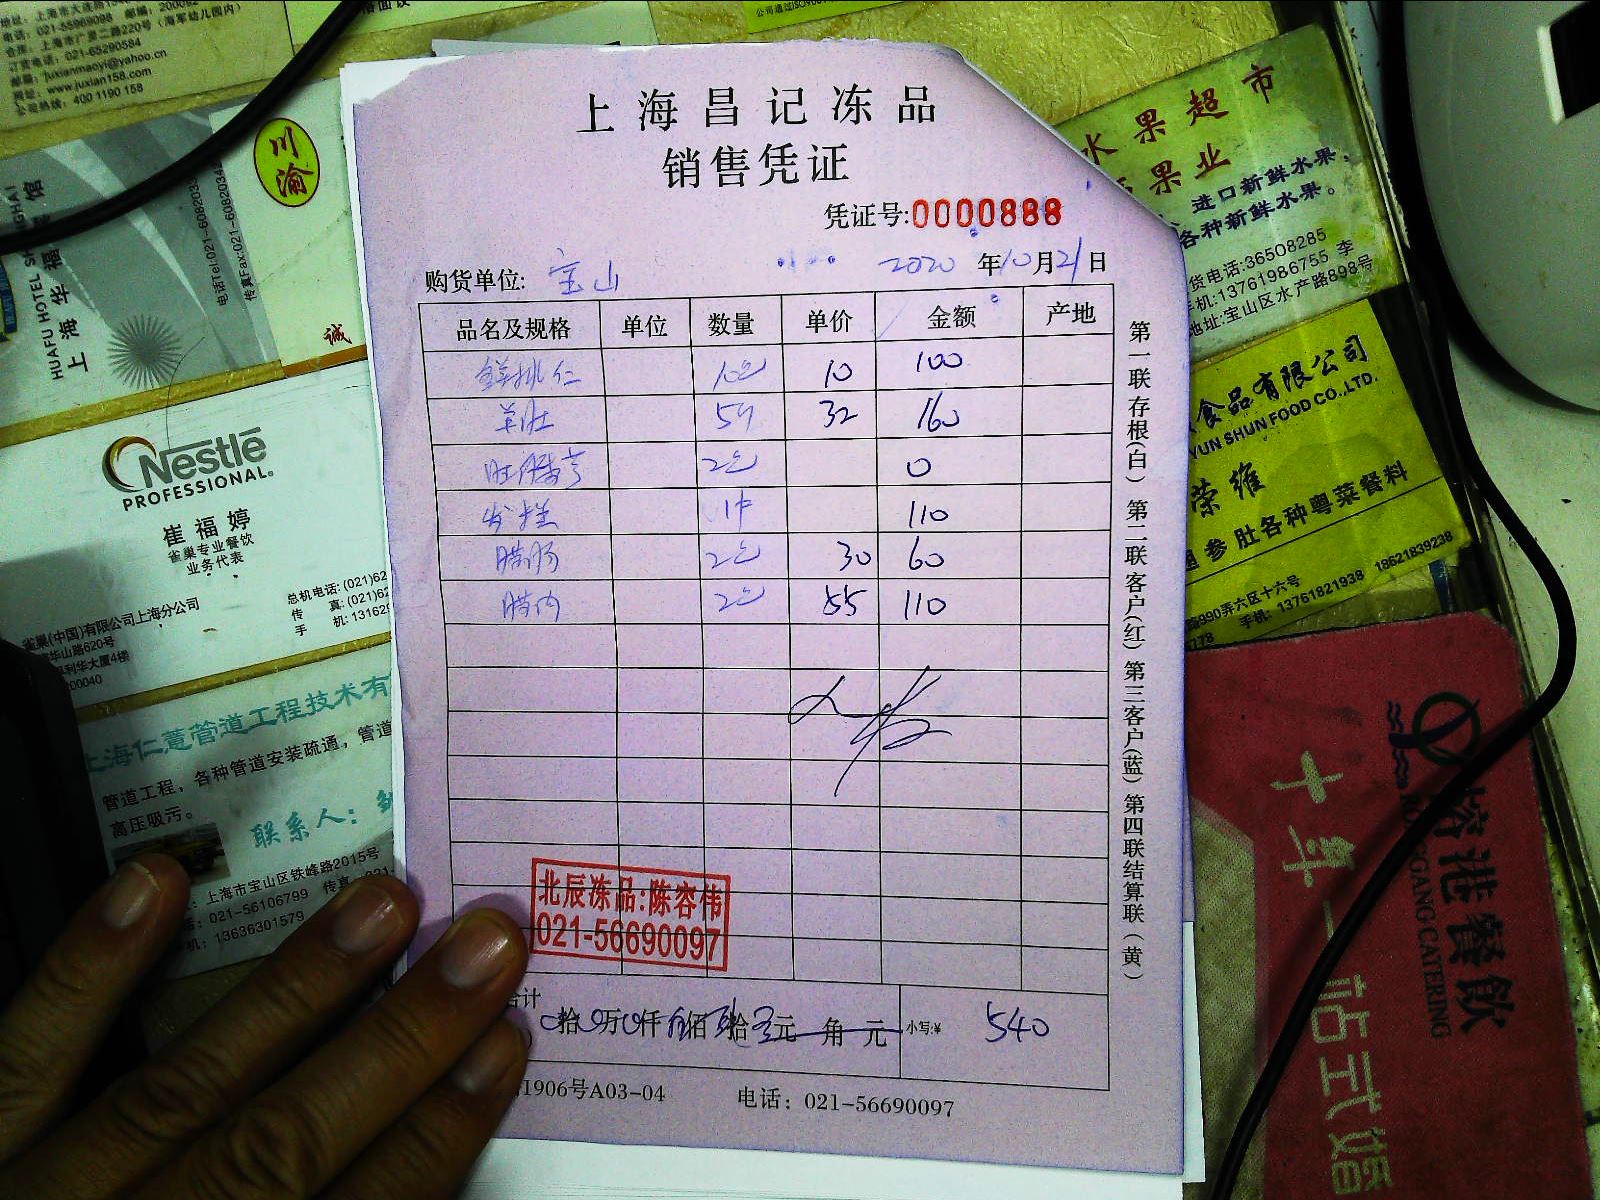 地址：上海市大连路
电话：021-55969088 邮编：2000
仓库：上海市广灵二路220号（海军幼儿园内）
订货电话：021-65290584
邮箱：juxianmaoyi@yahoo.cn
网址：www.juxian158.com
公司热线：400 1190 158
川渝
诚
HUAFU HOTEL SHANGHAI
上海华
电话Tel:021-6082033
传真Fax:021-60820345
Nestlé
PROFESSIONAL.
崔福婷
雀巢专业餐饮
业务代表
雀巢(中国)有限公司上海分公司
总机电话:(021)62
传 真:(021)62
手 机:13162
华山路620号
利华大厦4楼
00040
上海仁薏管道工程技术有
管道工程，各种管道安装疏通，管道
高压吸污。
联系人：
：上海市宝山区铁峰路2015号
：021-56106799 传真
机：13636301579
上海昌记冻品
销售凭证
凭证号:0000888
购货单位: 宝山 2020年10月21日
品名及规格 单位 数量 单价 金额 产地
10 100
羊肚 32 160
0
110
腊肠 30 60
腊肉 55 110
第一联存根(白) 第二联客户(红) 第三客户(蓝) 第四联结算联(黄)
北辰冻品:陈容伟
021-56690097
合计
拾 万 仟 佰 拾 元 角 元 小写:¥ 540
1906号A03-04 电话：021-56690097
水果超市
果业
进口新鲜水果，
各种新鲜水果。
货电话:36508285
手机:13761986755 李
地址:宝山区水产路898号
食品有限公司
YUN SHUN FOOD CO.,LTD.
荣维
参肚各种粤菜餐料
990弄六区十六号
手机：13761821938 18621839238
港餐飲
GANG CATERING
十年一站式婚